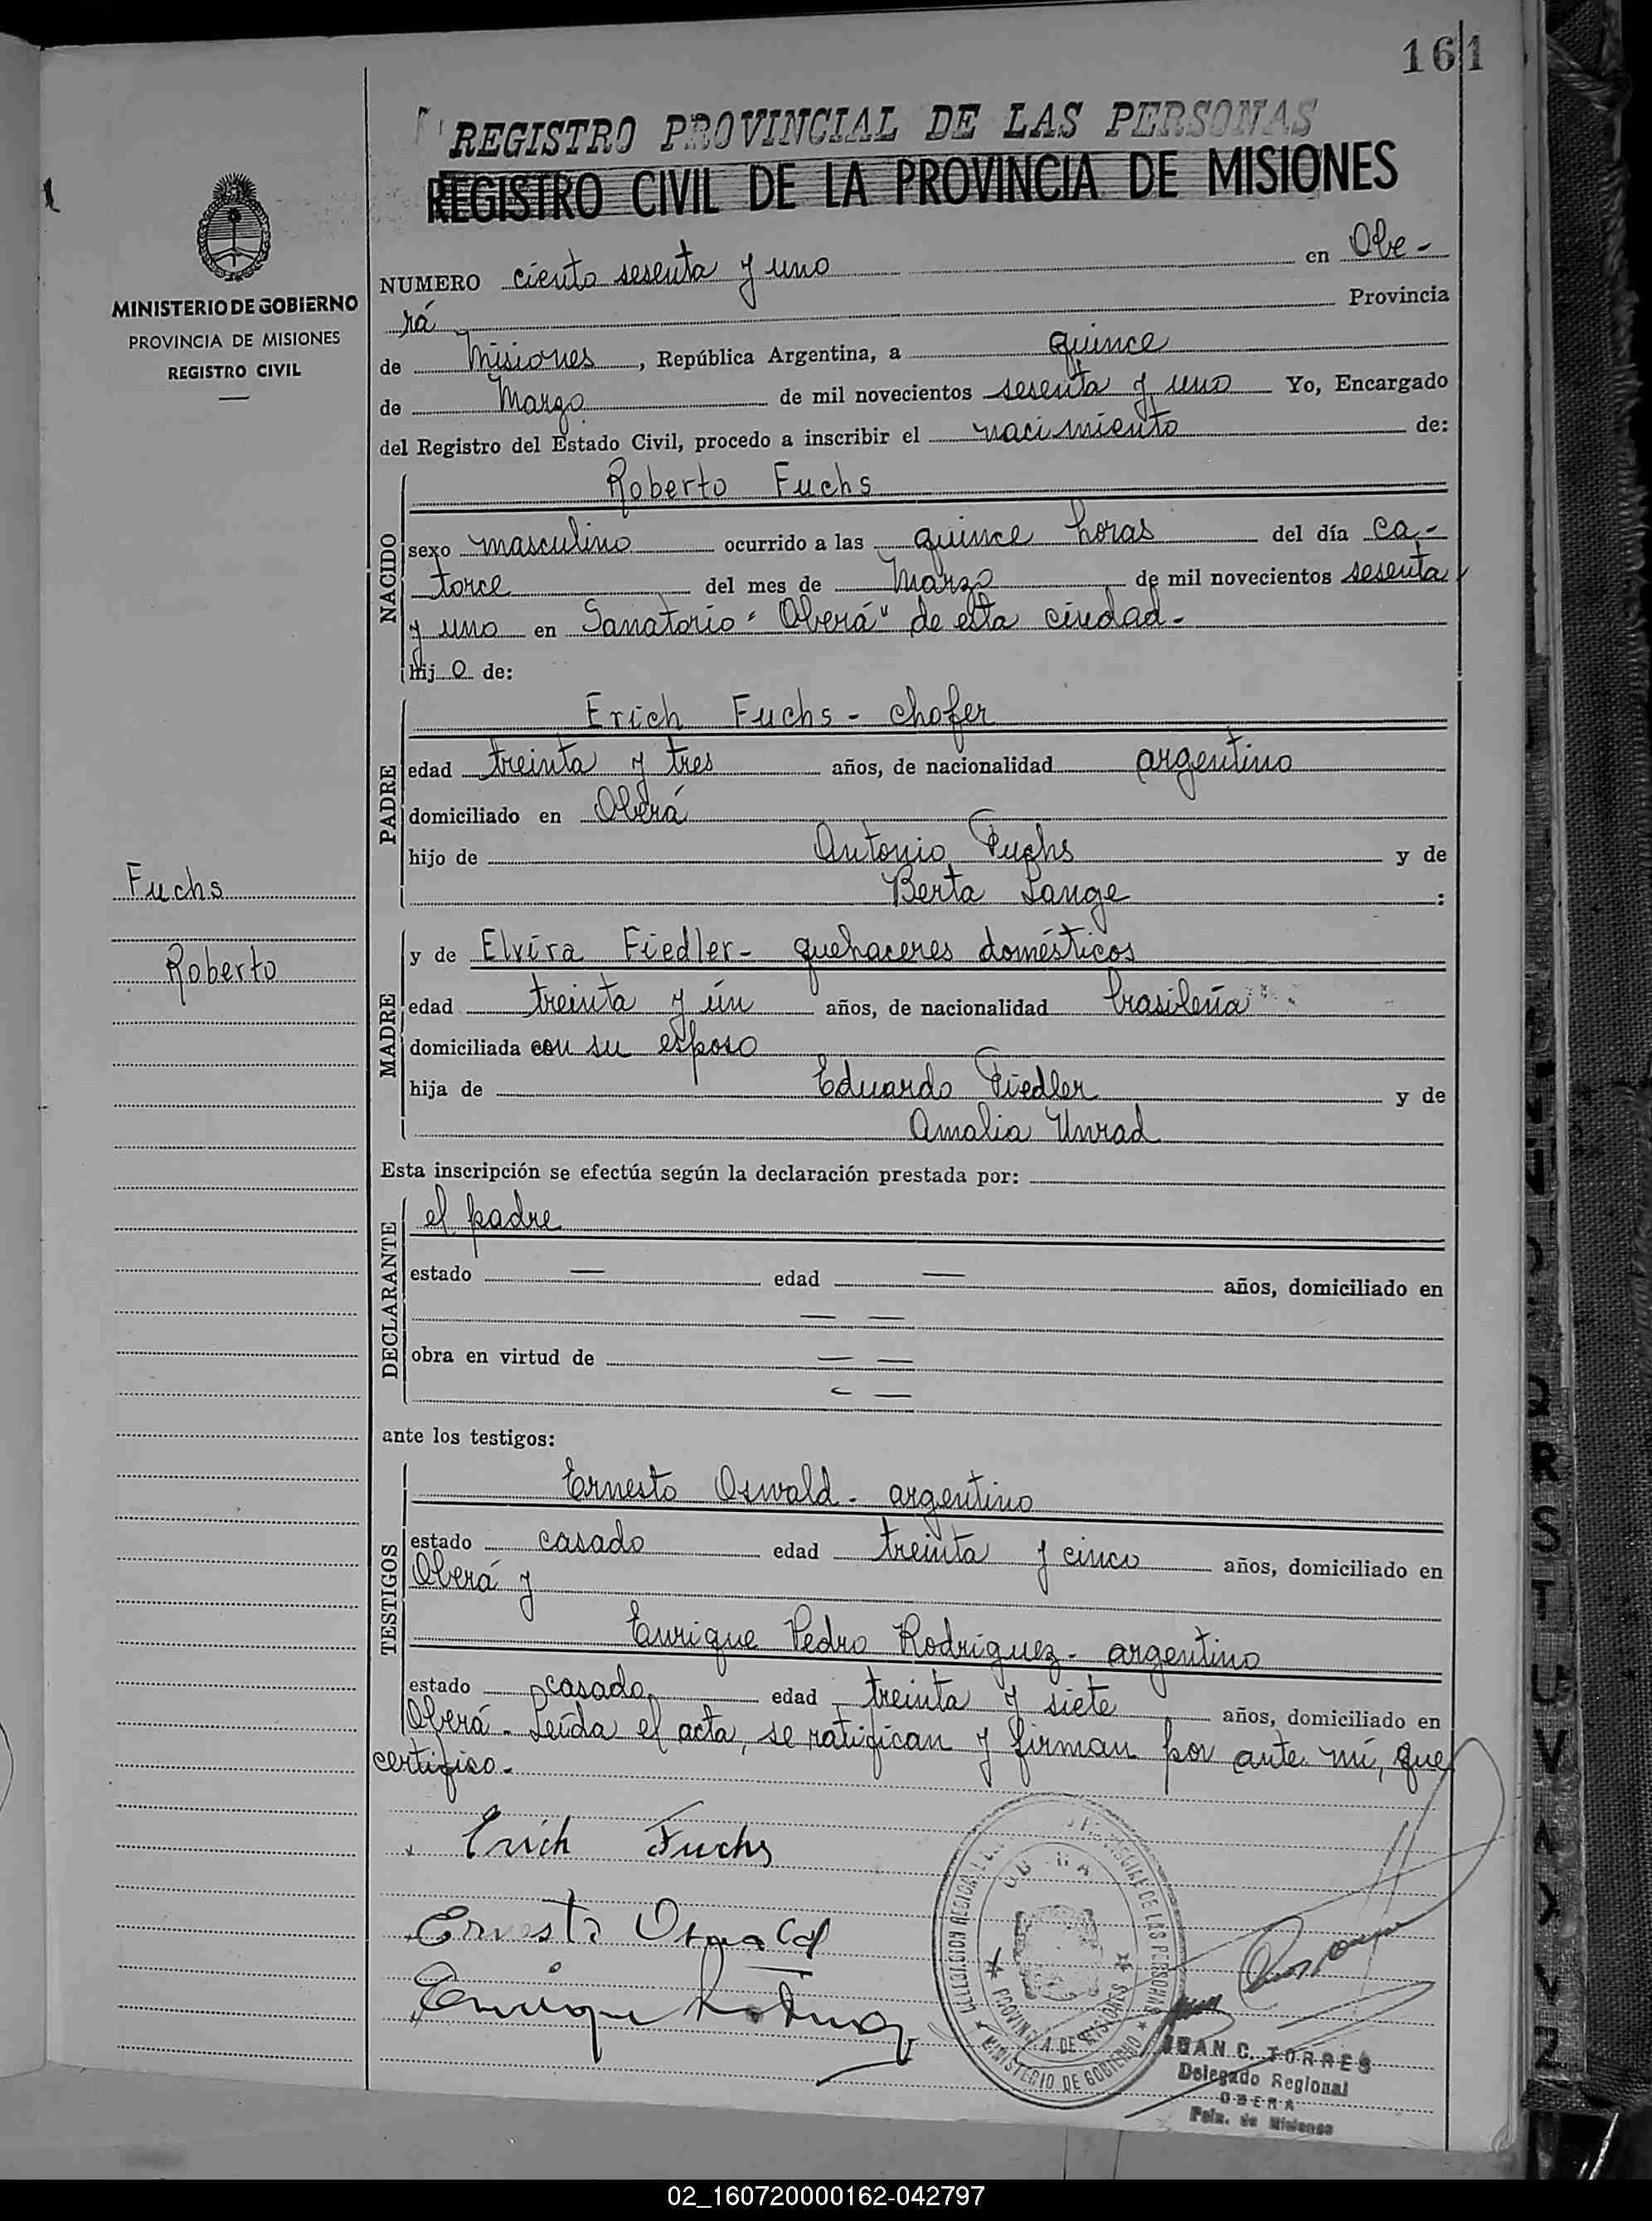 161
REGISTRO PROVINCIAL DE LAS PERSONAS
REGISTRO CIVIL DE LA PROVINCIA DE MISIONES
MINISTERIO DE GOBIERNO
PROVINCIA DE MISIONES
REGISTRO CIVIL
NUMERO ciento sesenta y uno en Obe-
rá Provincia
de Misiones, República Argentina, a quince
de Marzo de mil novecientos sesenta y uno Yo, Encargado
del Registro del Estado Civil, procedo a inscribir el nacimiento de:
NACIDO
Roberto Fuchs
sexo masculino ocurrido a las quince horas del día ca-
torce del mes de Marzo de mil novecientos sesenta
y uno en Sanatorio "Oberá" de esta ciudad.-
hij o de:
PADRE
Erich Fuchs - chofer
edad treinta y tres años, de nacionalidad argentino
domiciliado en Oberá
hijo de Antonio Fuchs y de
Berta Lange :
Fuchs
Roberto
MADRE
y de Elvira Fiedler - quehaceres domésticos
edad treinta y ún años, de nacionalidad brasileña
domiciliada con su esposo
hija de Eduardo Fiedler y de
Amalia Unrad
Esta inscripción se efectúa según la declaración prestada por:
DECLARANTE
el padre
estado — edad — años, domiciliado en
— —
obra en virtud de — —
— —
ante los testigos:
TESTIGOS
Ernesto Oswald - argentino
estado casado edad treinta y cinco años, domiciliado en
Oberá y
Enrique Pedro Rodriguez - argentino
estado casado edad treinta y siete años, domiciliado en
Oberá - Leída el acta, se ratifican y firman por ante mí, que
certifico.-
Erich Fuchs
Ernesto Oswald
Enrique Rodriguez
OBERA
PROVINCIA DE MISIONES
MINISTERIO DE GOBIERNO
JUAN C. TORRES
Delegado Regional
OBERA
Pcia. de Misiones
R
S
T
U
V
Z
02_160720000162-042797